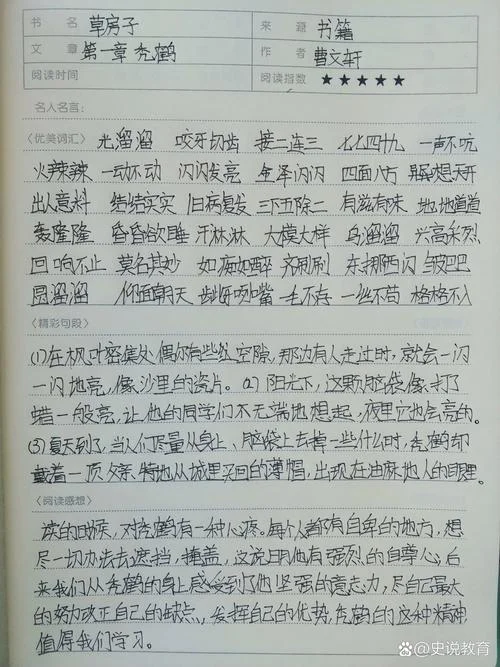 书 名 草房子 来 源 书籍
文 章 第一章 秃鹤 作 者 曹文轩
阅读时间 阅读指数 ★★★★★
名人名言:
〈优美词汇〉 光溜溜 咬牙切齿 接二连三 七七四十九 一声不吭
火辣辣 一动不动 闪闪发亮 金泽闪闪 四面八方 异想天开
出人意料 结结实实 旧病复发 三下五除二 有滋有味 地地道道
轰隆隆 昏昏欲睡 汗淋淋 大模大样 乌溜溜 兴高采烈
回响不止 莫名其妙 如痴如醉 齐刷刷 东挪西闪 皱巴巴
圆溜溜 仰面朝天 龇牙咧嘴 一毛不存 一丝不苟 格格不入
〈精彩句段〉
(1)在枫叶密集处偶尔有些红空隙,那边有人走过时,就会一闪
一闪地亮,像沙里的瓷片。(2)阳光下,这颗脑袋像打了
蜡一般亮,让他的同学们不无端地想起,夜里它也会亮的。
(3)夏天到了,当人们尽量从身上、脑袋上去掉一些什么时,秃鹤却
戴着一顶父亲特地从城里买回的薄帽,出现在油麻地人的眼里。
〈阅读感想〉
读的时候,对秃鹤有一种心疼。每个人都有自卑的地方,想
尽一切办法去遮挡,掩盖,这说明他有强烈的自尊心;后
来我们从秃鹤的身上感受到了他坚强的意志力,尽自己最大
的努力改正自己的缺点,发挥自己的优势,秃鹤的这种精神
值得我们学习。
史说教育